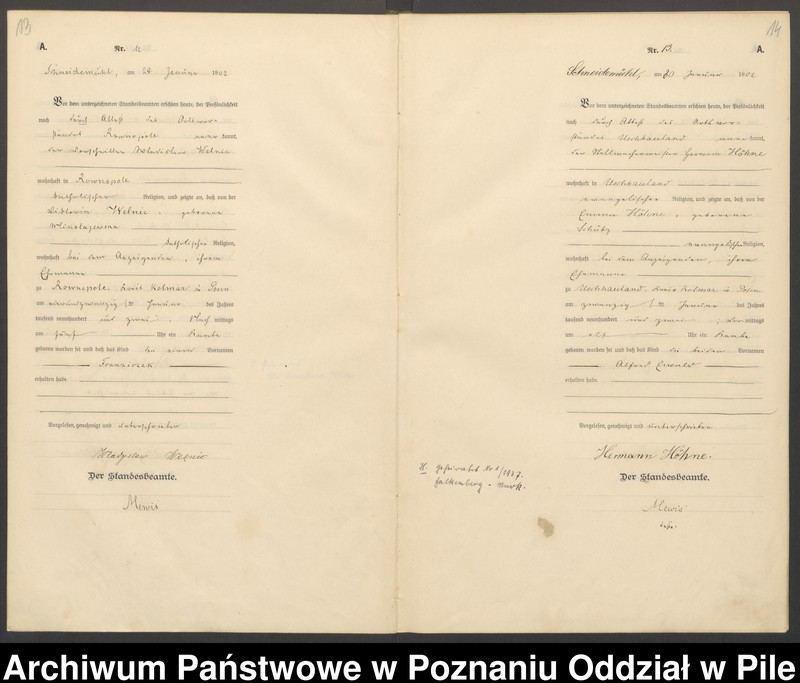 13
A.
Nr. 12
Schneidemühl, am 24 Januar 1902
Vor dem unterzeichneten Standesbeamten erschien heute, der Persönlichkeit
nach durch Attest des Ortsvor-
standes Rownopole kannt,
der Wladislaw Welnic
wohnhaft in Rownopole
katholischer Religion, und zeigte an, daß von der
Viktoria Welnic, geborene
katholischer Religion,
wohnhaft bei dem Anzeigenden, ihrem
Ehemanne
zu Rownopole, Kreis Kolmar in Posen
am ten Januar des Jahres
tausend neunhundert und zwei, Nach mittags
um fünf Uhr ein Knabe
geboren worden sei und daß das Kind den einen Vornamen
Franziszek
erhalten habe.
Vorgelesen, genehmigt und unterschrieben
Wladyslaw Welnic
Der Standesbeamte.
Mewis
14
Nr. 13.
A.
Schneidemühl, am Januar 1902
Vor dem unterzeichneten Standesbeamten erschien heute, der Persönlichkeit
nach durch Attest des Ortsvor-
standes Uschhauland kannt,
der Stellmachermeister Hermann Höhne
wohnhaft in Uschhauland
evangelischer Religion, und zeigte an, daß von der
Emma Höhne, geborene
Schütz
evangelischer Religion,
wohnhaft bei dem Anzeigenden, ihrem
Ehemanne
zu Uschhauland, Kreis Kolmar in Posen
am zwanzigsten Januar des Jahres
tausend neunhundert und zwei, Vor mittags
um elf Uhr ein Knabe
geboren worden sei und daß das Kind die beiden Vornamen
Alfred Ewald
erhalten habe.
Vorgelesen, genehmigt und unterschrieben
Hermann Höhne.
Der Standesbeamte.
Mewis
H. geheiratet Nr 2/1937.
Falkenberg - Mark.
Archiwum Państwowe w Poznaniu Oddział w Pile